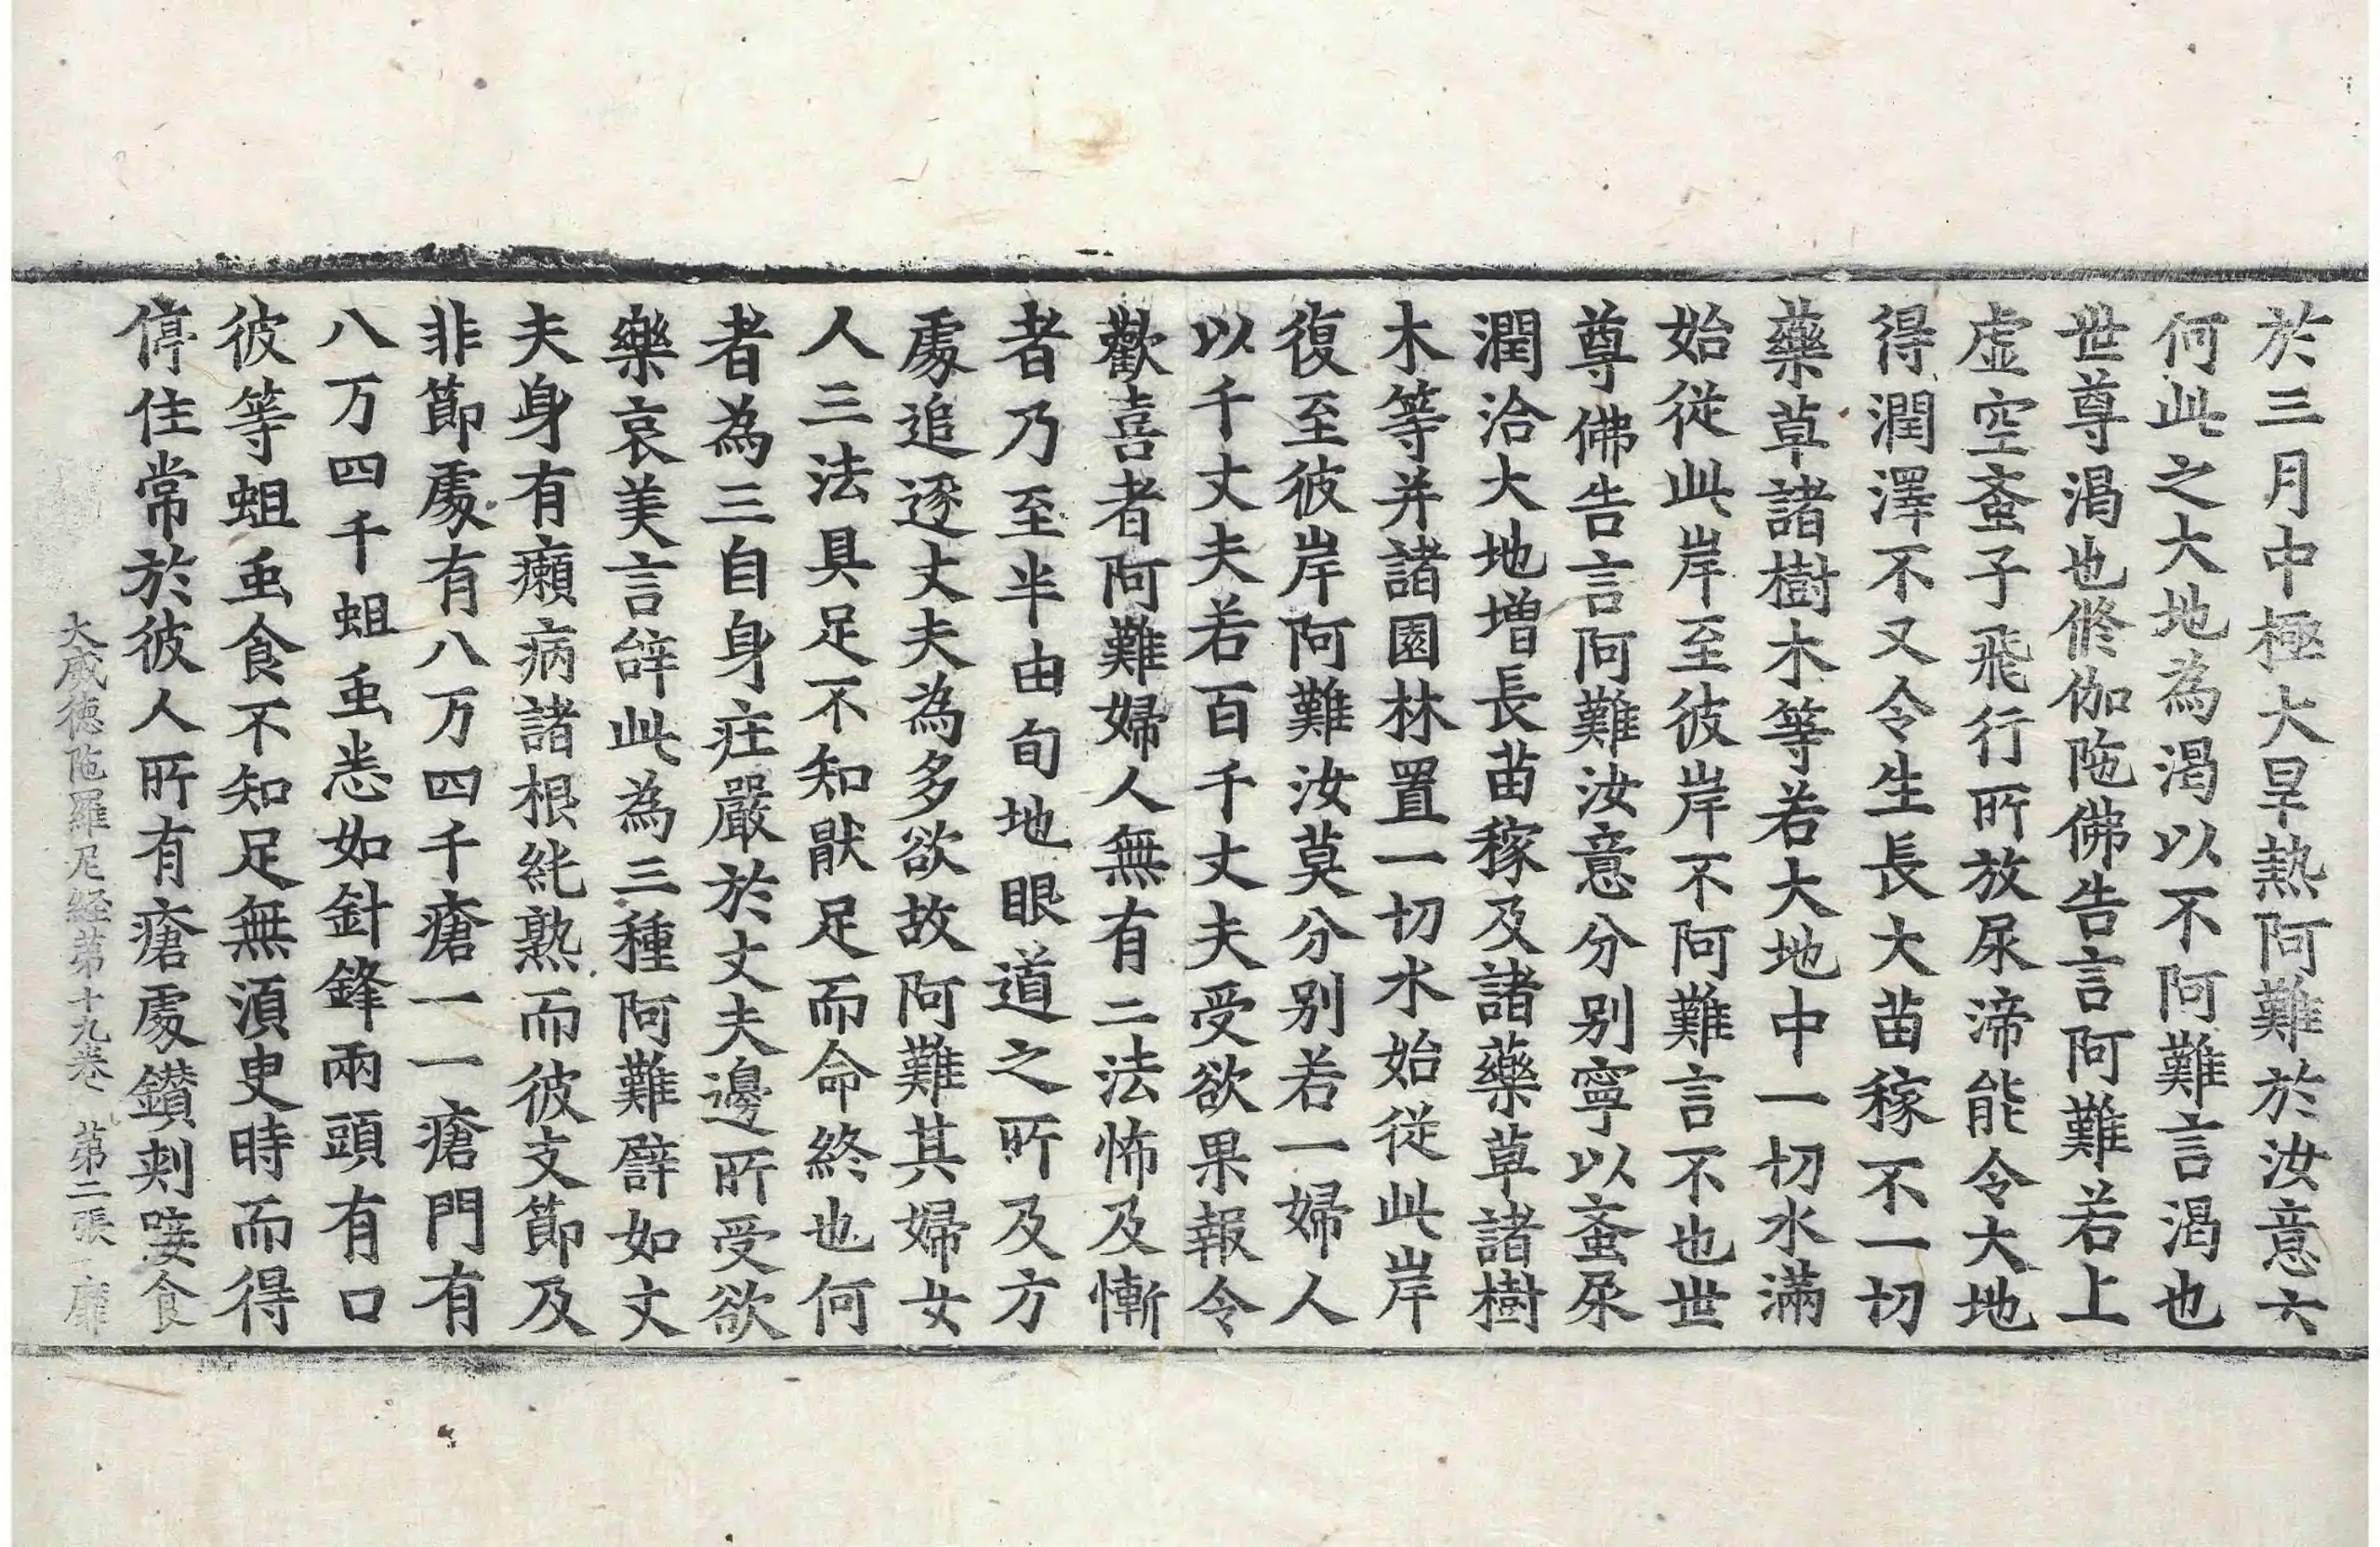 於三月中極大旱熱阿難於汝意云
何此之大地為渴以不阿難言渴也
世尊渴也脩伽陁佛告言阿難若上
虛空蚉子飛行所放尿渧能令大地
得潤澤不又令生長大苗稼不一切
藥草諸樹木等若大地中一切水滿
始從此岸至彼岸不阿難言不也世
尊佛告言阿難汝意分別寧以蚉尿
潤洽大地增長苗稼及諸藥草諸樹
木等并諸園林置一切水始從此岸
復至彼岸阿難汝莫分別若一婦人
以千丈夫若百千丈夫受欲果報令
歡喜者阿難婦人無有二法怖及慚
者乃至半由旬地眼道之所及方
處追逐丈夫為多欲故阿難其婦女
人三法具足不知猒足而命終也何
者為三自身疘嚴於丈夫邊所受欲
樂哀美言辝此為三種阿難辟如丈
夫身有癩病諸根純熟而彼支節及
非節處有八万四千瘡一一瘡門有
八万四千蛆䖝悉如針鋒兩頭有口
彼等蛆䖝食不知足無湏臾時而得
停住常於彼人所有瘡處鑽刾唼食
大威徳陁羅尼経第十九卷 第二張 㢘